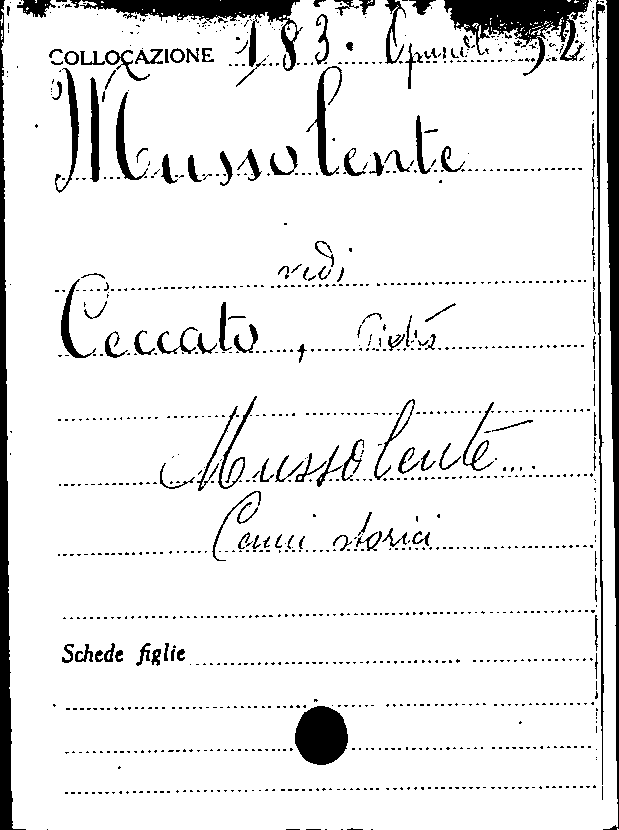 COLLOCAZIONE 183. Opuscoli. 92
Mussolente
vedi
Ceccato, Pietro
Mussolente...
Cenni storici
Schede figlie